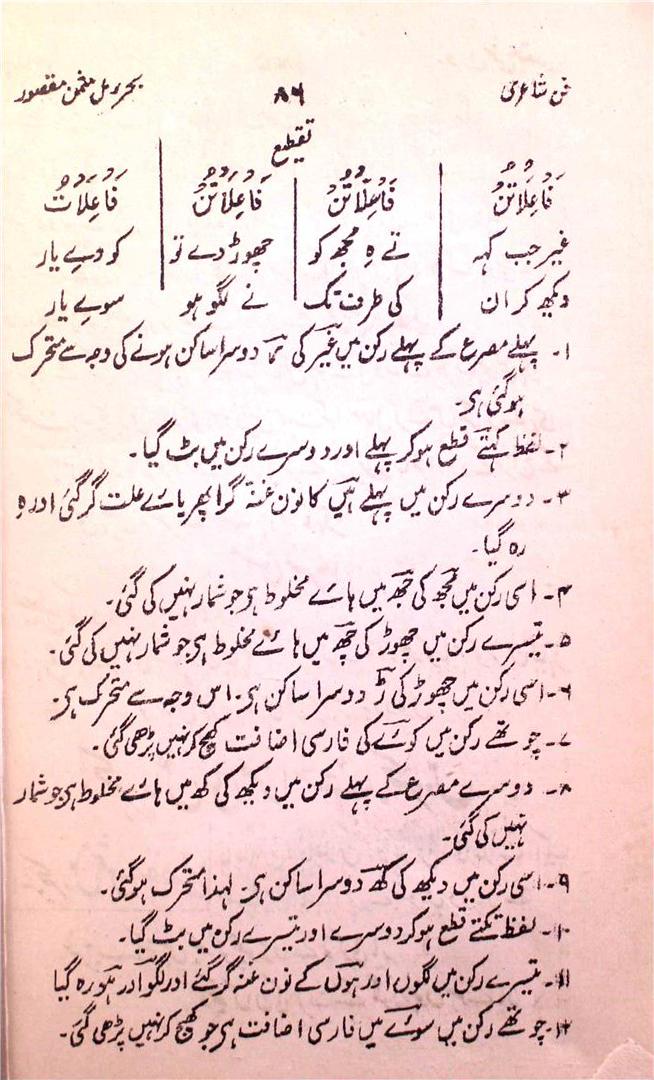 فن شاعری ۸۶ بحر رمل مثمن مقصور
تقطیع
فَاعِلَاتُنْ فَاعِلَاتُنْ فَاعِلَاتُنْ فَاعِلَاتْ
غیر جب کہہ تے ہِ مجھ کو چھوڑ دے تو کوے یار
دیکھ کر ان کی طرف تک نے لگو ہو سوے یار
۱۔ پہلے مصرع کے پہلے رکن میں غیر کی رَ دوسرا ساکن ہونے کی وجہ سے متحرک
ہو گئی ہی۔
۲۔ لفظ کہتے قطع ہو کر پہلے اور دوسرے رکن میں بٹ گیا۔
۳۔ دوسرے رکن میں پہلے ہیں کا نون غنہ گرا پھر یاے علت گر گئی اور ہِ
رہ گیا۔
۴۔ اسی رکن میں مجھ کی جھ میں ہاے مخلوط ہی جو شمار نہیں کی گئی۔
۵۔ تیسرے رکن میں چھوڑ کی چھ میں ہاے مخلوط ہی جو شمار نہیں کی گئی۔
۶۔ اسی رکن میں چھوڑ کی ڑ دوسرا ساکن ہی۔ اس وجہ سے متحرک ہی۔
۷۔ چوتھے رکن میں کوے کی فارسی اضافت کھچ کر نہیں پڑھی گئی۔
۸۔ دوسرے مصرع کے پہلے رکن میں دیکھ کی کھ میں ہاے مخلوط ہی جو شمار
نہیں کی گئی۔
۹۔ اسی رکن میں دیکھ کی کھ دوسرا ساکن ہی۔ لہذا متحرک ہو گئی۔
۱۰۔ لفظ تکتے قطع ہو کر دوسرے اور تیسرے رکن میں بٹ گیا۔
۱۱۔ تیسرے رکن میں لگوں اور ہوں کے نون غنہ گر گئے اور لگو اور ہو رہ گیا
۱۲۔ چوتھے رکن میں سوے میں فارسی اضافت ہی جو کھچ کر نہیں پڑھی گئی۔